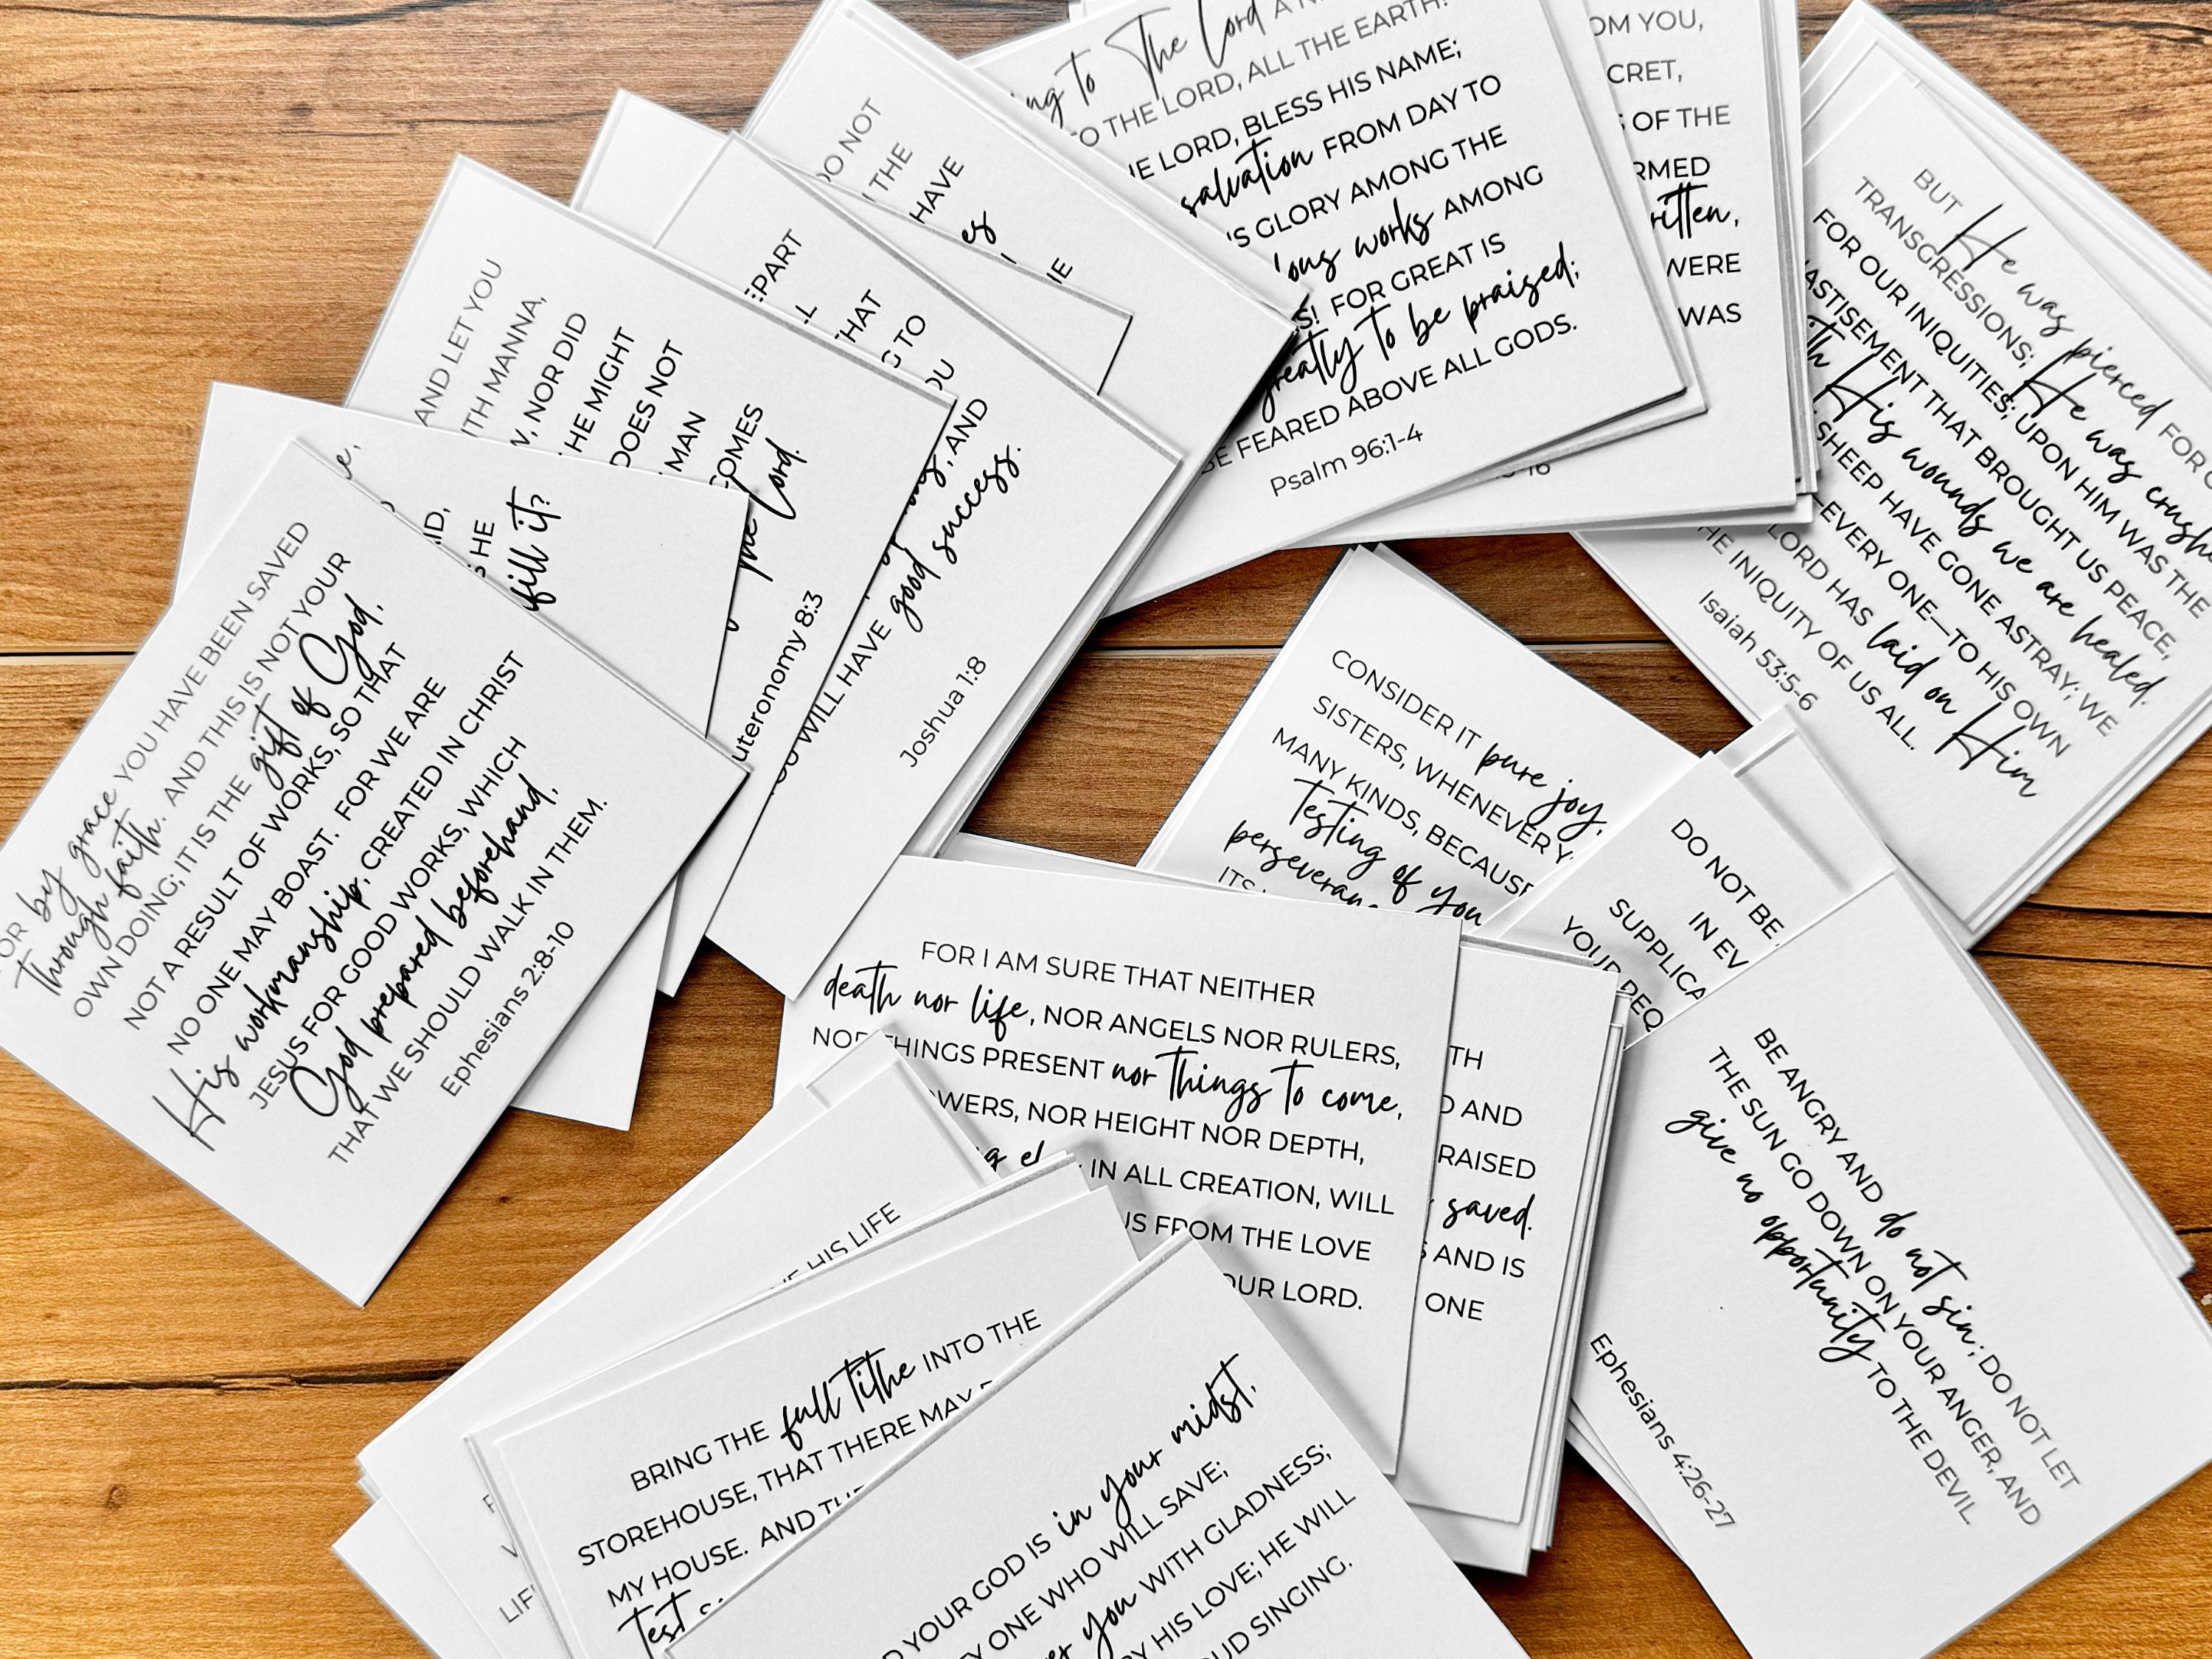 FOR by grace YOU HAVE BEEN SAVED
through faith. AND THIS IS NOT YOUR
OWN DOING; IT IS THE gift of God,
NOT A RESULT OF WORKS, SO THAT
NO ONE MAY BOAST. FOR WE ARE
His workmanship, CREATED IN CHRIST
JESUS FOR GOOD WORKS, WHICH
God prepared beforehand,
THAT WE SHOULD WALK IN THEM.
Ephesians 2:8-10
HE
fill it?
AND LET YOU
MANNA,
NOR DID
HE MIGHT
DOES NOT
MAN
COMES
the Lord.
8:3
THAT
TO
AND
WILL HAVE good success.
Joshua 1:8
DO NOT
THE
HAVE
to The Lord
THE LORD, ALL THE EARTH!
LORD, BLESS HIS NAME;
salvation FROM DAY TO
GLORY AMONG THE
works AMONG
FOR GREAT IS
greatly to be praised;
FEARED ABOVE ALL GODS.
Psalm 96:1-4
YOU,
OF THE
WERE
WAS
BUT He was pierced FOR
TRANSGRESSIONS; He was
FOR OUR INIQUITIES; UPON HIM WAS THE
THAT BROUGHT US PEACE,
His wounds we are healed.
SHEEP HAVE GONE ASTRAY; WE
EVERY ONE—TO HIS OWN
LORD HAS laid on Him
INIQUITY OF US ALL.
Isaiah 53:5-6
CONSIDER IT pure joy,
SISTERS, WHENEVER
MANY KINDS, BECAUSE
Testing of you
DO NOT BE
IN
FOR I AM SURE THAT NEITHER
death nor life, NOR ANGELS NOR RULERS,
NOR THINGS PRESENT nor things to come,
NOR HEIGHT NOR DEPTH,
IN ALL CREATION, WILL
US FROM THE LOVE
OUR LORD.
AND
saved.
AND IS
ONE
BE ANGRY AND do not sin; DO NOT LET
THE SUN GO DOWN ON YOUR ANGER, AND
give no opportunity TO THE DEVIL
Ephesians 4:26-27
HIS LIFE
BRING THE full tithe INTO THE
STOREHOUSE, THAT THERE MAY
MY HOUSE. AND
Test
YOUR GOD IS in your midst,
ONE WHO WILL SAVE;
you WITH GLADNESS;
HIS LOVE; HE WILL
SINGING.